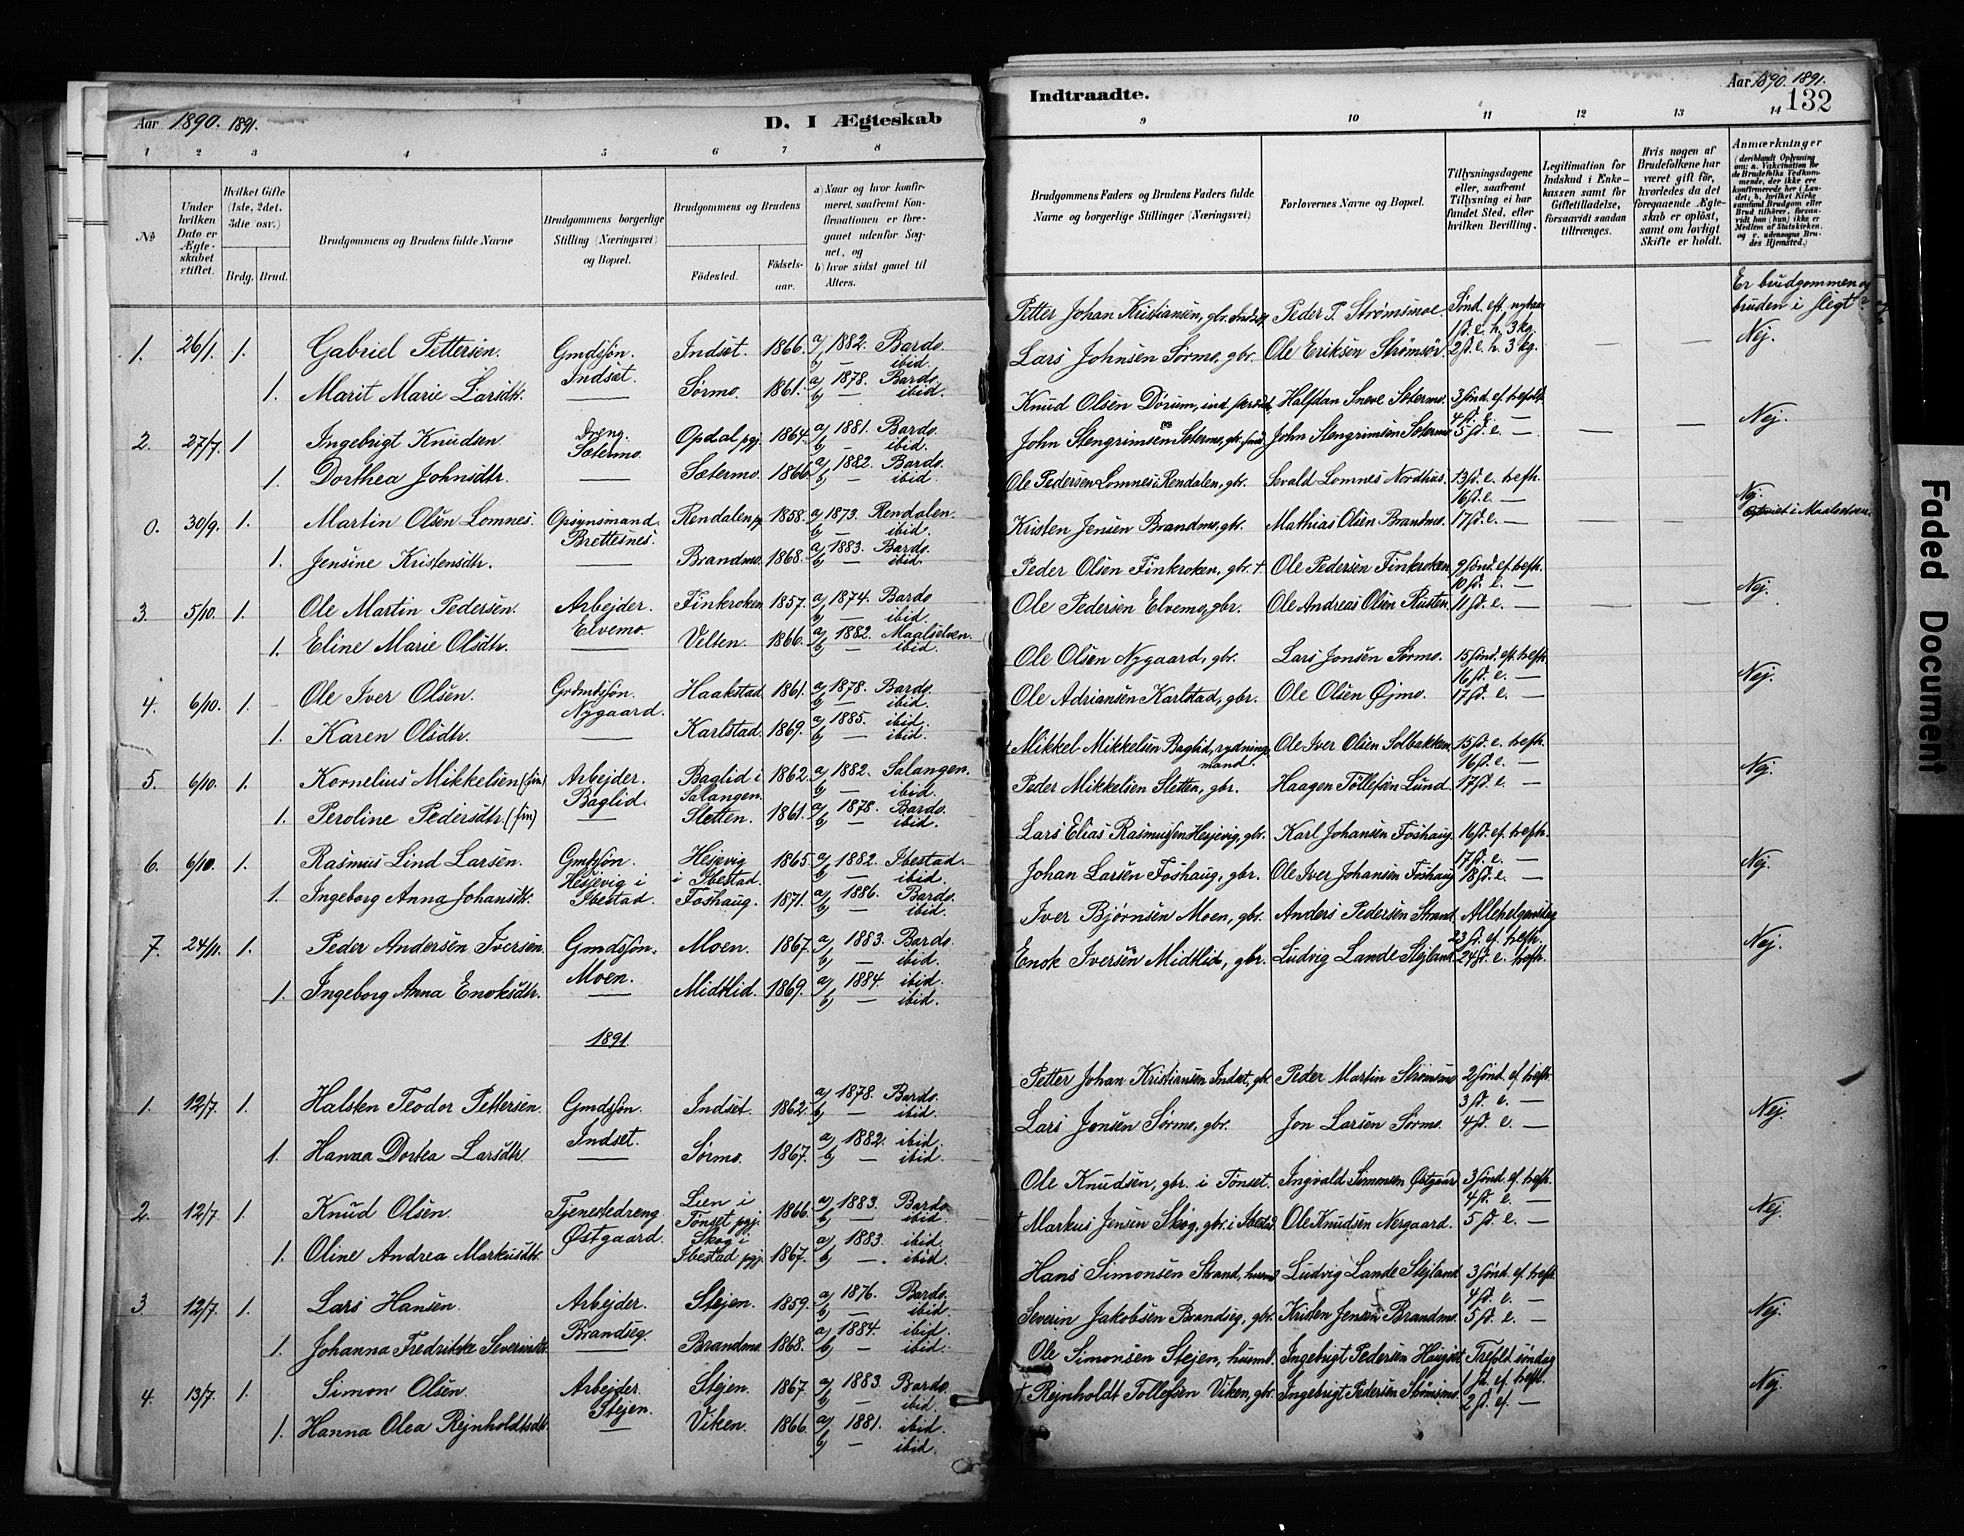 Aar 1890. 1891.
D. I Ægteskab
1 2 3 4 5 6 7 8
№
Under hvilken Dato er Ægteskabet stiftet.
Hvilket Gifte (1ste, 2det, 3die osv.)
Brdg. Brud.
Brudgommens og Brudens fulde Navne
Brudgommens borgerlige Stilling (Næringsvei) og Bopæl.
Brudgommens og Brudens
Fødested.
Fødselsaar.
a) Naar og hvor konfirmeret, saafremt Konfirmationen er foregaaet udenfor Sognet, og
b) hvor sidst gaaet til Alters.
1. 26/1. 1. Gabriel Pettersen. Gmdsøn. Indset. 1866. a) 1882. Bardo.
Indset. b) — ibid.
1. Marit Marie Larsdtr. — Sørmo. 1861. a) 1878. Bardo.
b) — ibid.
2. 27/7. 1 Ingebrigt Knudsen. Dreng. Opdal pgj. 1864. a) 1881. Bardo.
Sætermo. b) — ibid.
1. Dorthea Johnsdtr. — Sætermo. 1866. a) 1882. Bardo.
b) — ibid.
0. 30/9. 1. Martin Olsen Lomnes. Opsynsmand. Rendalen pgj. 1858. a) 1873. Rendalen.
Brettesnes. b) — ibid.
1. Jensine Kristensdtr. — Brandmo. 1868. a) 1883. Bardo.
b) — ibid.
3. 5/10. 1. Ole Martin Pedersen. Arbejder. Finkroken. 1857. a) 1874. Bardo
Elvemo. b) — ibid.
1. Eline Marie Olsdtr. — Velten. 1866. a) 1882. Maalselven.
b) — ibid.
4. 6/10. 1. Ole Iver Olsen. Grdmdsøn. Haakstad. 1861. a) 1878. Bardo.
Nygaard. b) — ibid.
1. Karen Olsdtr. — Karlstad. 1869. a) 1885. ibid.
b) — ibid.
5. 6/10. 1. Kornelius Mikkelsen (fin) Arbejder. Baglid i Salangen. 1862. a) 1882. Salangen.
Baglid. b) — ibid.
1. Peroline Pedersdtr. (fin) — Sletten. 1861. a) 1878. Bardo.
b) — ibid.
6. 6/10. 1. Rasmus Lind Larsen. Gmdsøn. Hesjevig i Ibestad. 1865. a) 1882. Ibestad.
Hesjevig i Ibestad. b) — ibid.
1. Ingeborg Anna Johansdtr. Foshaug. 1871. a) 1886. Bardo.
b) — ibid.
7. 24/11. 1. Peder Andersen Iversen. Gmdsøn. Moen. 1867. a) 1883. Bardo.
Moen. b) — ibid.
1. Ingeborg Anna Enoksdtr. — Midtlid. 1869. a) 1884. ibid.
b) — ibid.
1891.
1. 12/7. 1. Halsten Teodor Pettersen. Gmdsøn. Indset. 1862. a) 1878. Bardo.
Indset. b) — ibid.
1. Hanna Dortea Larsdtr. — Sørmo. 1867. a) 1882. ibid.
b) — ibid.
2. 12/7. 1. Knud Olsen. Tjenestedreng. Lien i Tønset pgj. 1866. a) 1883. Bardo.
Østgaard. b) — ibid.
1. Oline Andrea Markusdtr. Skog i Ibestad pgj. 1867. a) 1883. ibid.
b) — . ibid.
3. 12/7. 1. Lars Hansen. Arbejder. Stejen. 1859. a) 1876. Bardo.
Brandseg. b) — ibid.
1. Johanna Fredrikke Severinsdtr. — Brandmo. 1868. a) 1884. ibid.
b) — ibid.
4. 13/7. 1. Simon Olsen. Arbejder. Stejen. 1867. a) 1883. Bardo.
Stejen. b) — ibid.
1. Hanna Olea Rejnholdtsdtr. — Viken. 1866. a) 1881. ibid.
b) — ibid.
Indtraadte.
Aar 1890. 1891.
132
9 10 11 12 13 14
Brudgommens Faders og Brudens Faders fulde Navne og borgerlige Stillinger (Næringsvei)
Forlovernes Navne og Bopæl.
Tillysningsdagene eller, saafremt Tillysning ei har fundet Sted, efter hvilken Bevilling.
Legitimation for Indskud i Enkekassen samt for Giftetilladelse, forsaavidt saadan tiltrænges.
Hvis nogen af Brudefolkene har været gift før, hvorledes da det foregaaende Ægteskab er opløst, samt om lovligt Skifte er holdt.
Anmærkninger
(deriblandt Oplysning om: a. Vakcination for de Brudefolks Vedkommende, der ikke ere konfirmerede her i Landet; b. hvilket Kirkesamfund Brudgom eller Brud tilhører, forsaavidt han (hun) ikke er Medlem af Statskirken, og c. udensogns Brudes Hjemsted.)
Er brudgommen og bruden i slegt?
Petter Johan Kristiansen, gbr. Indset Peder P. Strømsmoe Sønd. eft. nytaar
1 s. e. h. 3 kg.
Lars Johnsen Sørmo, gbr. Ole Eriksen Strømsør. 2 s. e. h. 3 kg. — — Nej.
Knud Olsen Dørum, ind. Halfdan Sneve Sætermo. 3 sønd. ef. trefold.
4 s. e. —
John Stengrimsen Sætermo, gbr. John Stengrimsen Sætermo 5 s. e. — — — Nej.
Ole Pedersen Lomnes i Rendalen, gbr. Sevald Lomnes Nordhus. 13 s. e. trefh.
16 s. e. —
Kristen Jensen Brandmo, gbr. Mathias Olsen Brandmo. 17 s. e. — — — Nej. i Maalselven.
Peder Olsen Finkroken, gbr. + Ole Pedersen Finkroken 9 sønd. ef. trefh.
10 s. e. —
Ole Pedersen Elvemo, gbr. Ole Andreas Olsen Rusten. 11 s. e. — — — Nej.
Ole Olsen Nygaard, gbr. Lars Jonsen Sørmo. 15 sønd. ef. trefh.
16 s. e. —
Ole Adriansen Karlstad, gbr. Ole Olsen Øjmo. 17 s. e. — Nej.
+ Mikkel Mikkelsen Baglid, rydningsmand. Ole Iver Olsen Solbakken. 15 s. e. trefh.
16 s. e. —
Peder Mikkelsen Sletten, gbr. Haagen Tollefsen Lund. 17 s. e. — Nej.
Lars Elias Rasmussen Hesjevig, gbr. Karl Johansen Foshaug. 16 s. ef. trefh.
17 s. e. —
Johan Larsen Foshaug, gbr. Ole Iver Johansen Foshaug 18 s. e. — Nej.
Iver Bjørnsen Moen, gbr. Anders Pedersen Strand. Allehelgensdag
23 s. ef. trefh.
Enok Iversen Midtlid, gbr. Ludvig Lande Stejland. 24 s. e. trefh. Nej.
Petter Johan Kristiansen Indset, gbr. Peder Martin Strømsmo 2 sønd. ef. trefh.
3 s. e. —
Lars Jonsen Sørmo, gbr. Jon Larsen Sørmo. 4 s. e. — Nej.
Ole Knudsen, gbr. i Tønset. Ingvald Simonsen Østgaard 3 sønd. ef. trefh.
4 s. e. —
+ Markus Jensen Skog, gbr. i Ibestad Ole Knudsen Nergaard. 5 s. e. — Nej.
Hans Simonsen Strand, husmd. Ludvig Lande Stejland. 3 sønd. ef. trefh.
4 s. e. —
Severin Jakobsen Brandseg, gbr. Kristen Jensen Brandmo. 5 s. e. — Nej.
Ole Simonsen Stejen, husmd. Ingebrigt Pedersen Haugset Trefold. søndag
1 s. e. trefh.
+ Rejnholdt Tollefsen Viken, gbr. Ingebrigt Pedersen Strømsmo. 2 s. ef. — Nej.
Faded Document